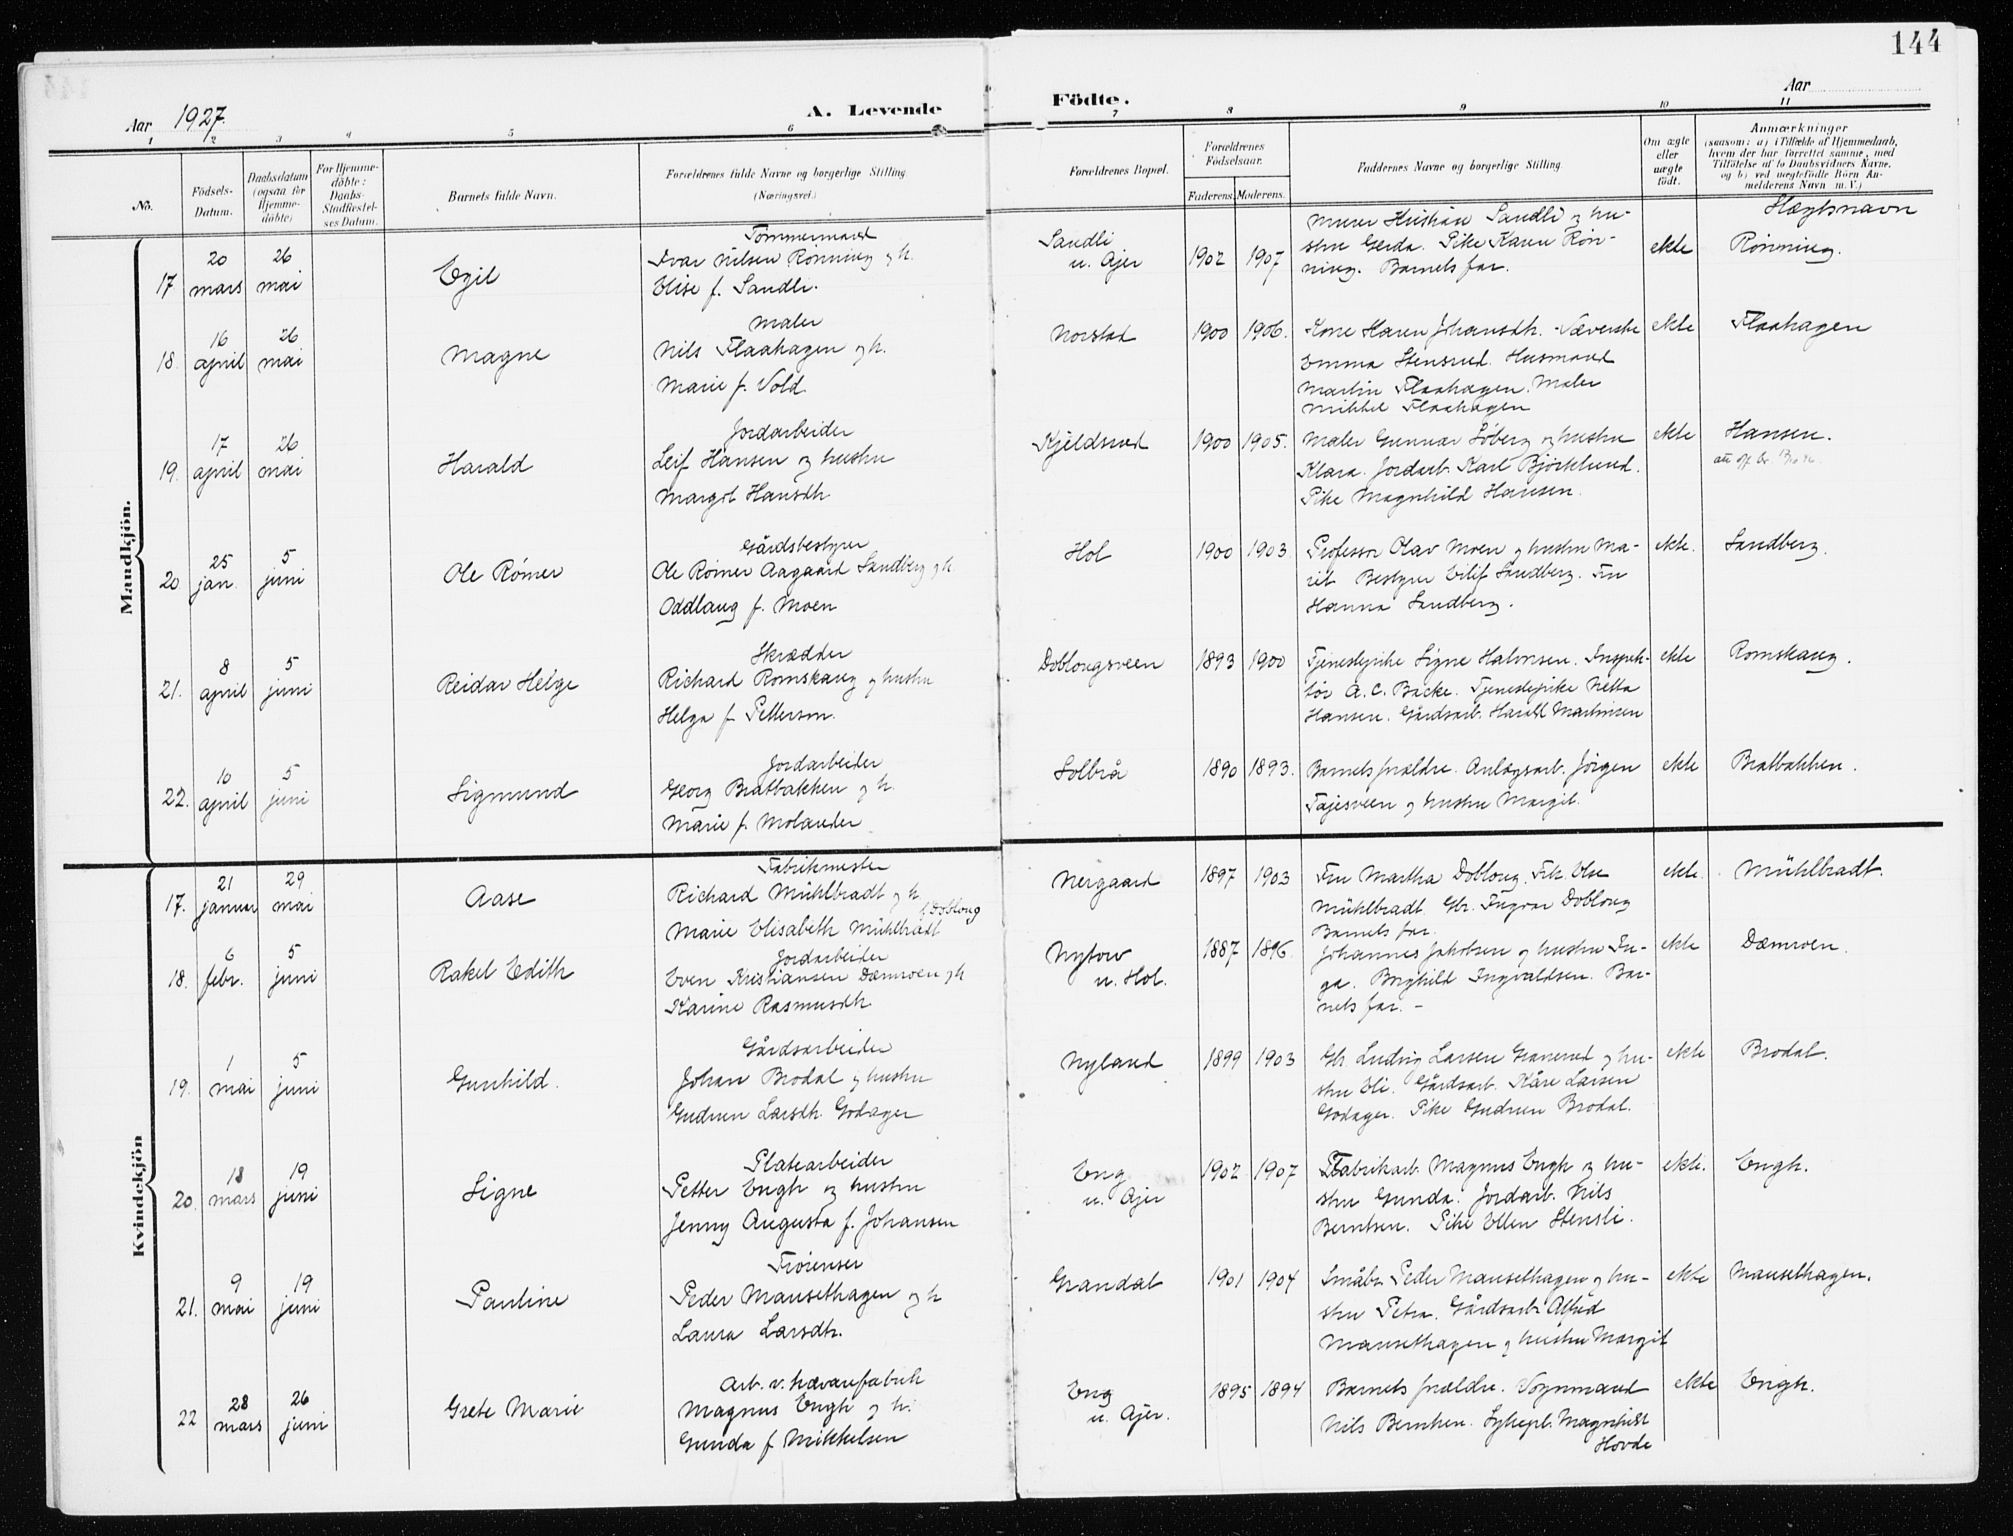 144
Aar 1927.
A. Levende Födte.
Aar
1 2 3 4 5 6 7 8 9 10 11
No.
Födsels-Datum.
Daabsdatum (ogsaa for Hjemme-döbte)
For Hjemme-döbte: Daabs-Stadfæstel-ses Datum.
Barnets fulde Navn.
Forældrenes fulde Navne og borgerlige Stilling (Næringsvei.)
Forældrenes Bopæl.
Forældrenes Födselsaar.
Faderens. Moderens.
Faddernes Navne og borgerlige Stilling.
Om ægte eller uægte födt.
Anmærkninger
(saasom: a) i Tilfælde af Hjemmedaab, hvem der har forrettet samme, med Tilföielse af to Daabsvidners Navne, og b) ved uægtefödte Börn An-melderens Navn m. V.)
Mandkjön.
17 20 mars 26 mai Egil
Tømmermand
Ivar Nilsen Rønning og h.
Elise f. Sandli.
Sandli
u. Ajer
1902 1907
Murer Kristian Sandli og hu-
stru Gerda. Pike Karen Røn-
ning. Barnets far.
ekte
Slegtsnavn
Rønning.
18. 16 april 26 mai Magne
Maler
Nils Flaahagen og h.
Marie f. Vold.
Norstad
1900 1906.
Kone Karen Johansdh. Væverske
Emma Stensrud. Husmand
Martin Flaahagen. Maler
Mikkel Flaahagen
ekte
Flaahagen
19. 17 april 26 mai Harald
Jordarbeider
Leif Hansen og hustru
Margot Hansdh.
Kjeldsrud
1900 1905.
Maler Gunnar Søberg og hustru
Klara. Jordarb. Karl Bjørklund.
Pike Magnhild Hansen.
ekte
Hansen.
20 25 jan. 5 juni Ole Rømer
Gårdsbestyrer
Ole Rømer Aagaard Sandberg og h.
Oddlaug f. Moen
Hol
1900 1903.
Professor Olav Moen og hustru Ma-
rit Bestyrer Eilif Sandberg. Fru
Hanna Sandberg.
ekte.
Sandberg.
21. 8 april 5 juni Reidar Helge
Skrædder
Richard Romskaug og hustru
Helga f. Petterson.
Doblougsveen
1893 1900
Tjenestepike Signe Halvorsen. Inspek-
tør A. C. Backe. Tjenestepike Netta
Hansen. Gårdsarb. Harald Martinsen
ekte
Romskaug.
22. 10 april 5 juni Sigmund
Jordarbeider
Georg Bratbakken og h.
Marie f. Molander
Solbrå
1890 1893.
Barnets forældre. Anlægsarb. Jörgen
Tajesveen og hustru Margit.
ekte
Bratbakken.
Kvindekjön
17. 21 januar 29 mai Aase
Fabrikmester
Richard Mühlbradt og h
Marie Elisabeth Mühlbradt f. Dobloug
Nergaard
1897 1903
Fru Martha Doblong. Frk Else
Mühlbradt. Gbr. Ingvar Doblong
Barnets far.
ekte.
Mühlbradt.
18. 6 febr. 5 juni Rakel Edith
Jordarbeider
Even Kristiansen Dæmroen og h
Karine Rasmusdh
Nytorv
u. Hol.
1887 1896.
Johannes Jakobsen og hustru In-
ga. Borghild Ingvaldsen. Bar-
nets far. –
ekte
Dæmroen.
19. 1 mai 5 juni Gunhild.
Gårdsarbeider
Johan Brodal og hustru
Gudrun Larsdh. Godager
Nyland
1899 1903
Gbr. Ludvig Larsen Granerud og hu-
stru Eli. Gårdsarb. Kåre Larsen
Godager. Pike Gudrun Brodal.
ekte
Brodal.
20. 18 mars 19 juni Signe
Platearbeider
Petter Engh og hustru
Jenny Augusta f. Johansen
Eng
u. Ajer
1902 1907
Fabrikarb. Magnus Engh og hu-
stru Gunda. Jordarb. Nils
Berntsen. Pike Ellen Stensli.
ekte.
Engh.
21. 9 mai 19 juni Pauline
Frørenser
Peder Mansethagen og h
Laura Larsdh.
Grandal
1901 1904
Småbr. Peder Mansethagen og hu-
stru Petra. Gårdsarb. Alfred
Mansethagen og hustru Margit
ekte
Mansethagen.
22 28 mars 26 juni Grete Marie
Arb. v. hævarefabrik
Magnus Engh og h.
Gunda f. Mikkelsen
Eng
u. Ajer.
1895 1894
Barnets forældre. Vognmand
Nils Berntsen. Sykepl. Magnhild
Hovde
ekte
Engh.